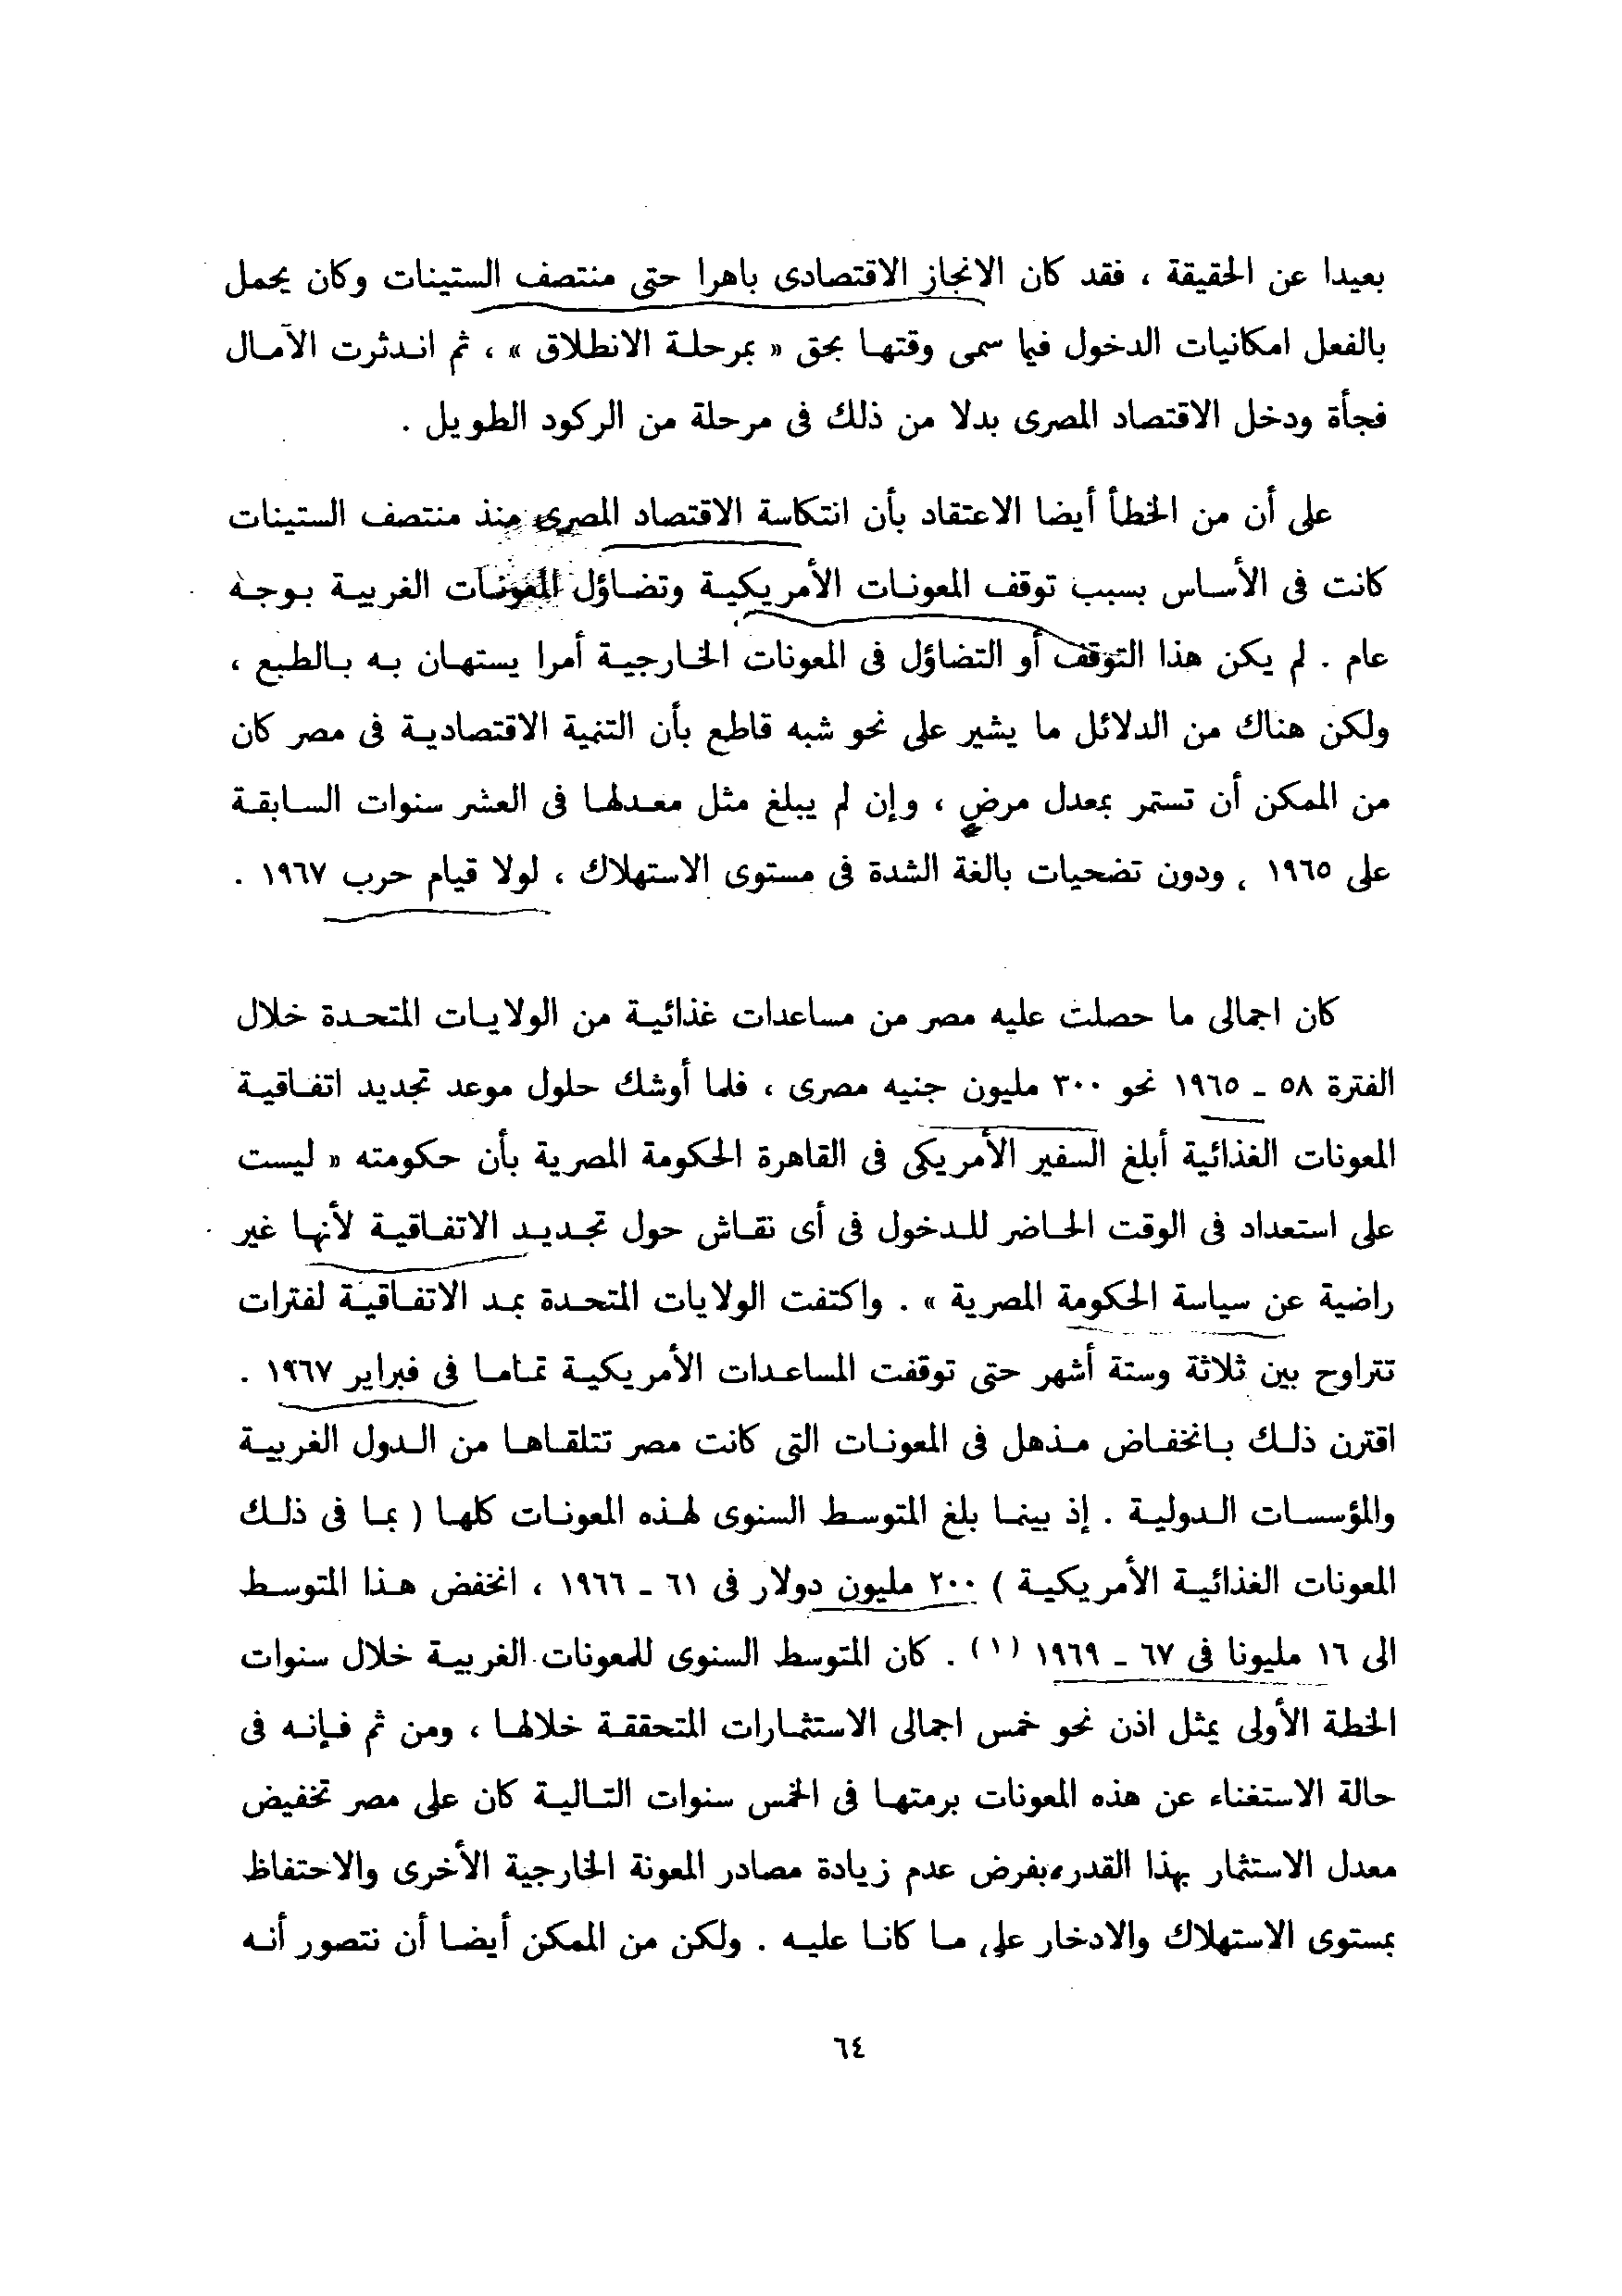 بعيدا عن الحقيقة ، فقد كان الانجاز الاقتصادى باهرا حتى منتصف الستينات وكان يحمل
بالفعل امكانيات الدخول فيما سمى وقتها بحق « بمرحلة الانطلاق » ، ثم اندثرت الآمال
فجأة ودخل الاقتصاد المصرى بدلا من ذلك فى مرحلة من الركود الطويل .
على أن من الخطأ أيضا الاعتقاد بأن انتكاسة الاقتصاد المصرى منذ منتصف الستينات
كانت فى الأساس بسبب توقف المعونات الأمريكية وتضاؤل المعونات الغربية بوجه
عام . لم يكن هذا التوقف أو التضاؤل فى المعونات الخارجية أمرا يستهان به بالطبع ،
ولكن هناك من الدلائل ما يشير على نحو شبه قاطع بأن التنمية الاقتصادية فى مصر كان
من الممكن أن تستمر بمعدل مرضٍ ، وإن لم يبلغ مثل معدلها فى العشر سنوات السابقة
على ١٩٦٥ ، ودون تضحيات بالغة الشدة فى مستوى الاستهلاك ، لولا قيام حرب ١٩٦٧ .
كان اجمالى ما حصلت عليه مصر من مساعدات غذائية من الولايات المتحدة خلال
الفترة ٥٨ ـ ١٩٦٥ نحو ٣٠٠ مليون جنيه مصرى ، فلما أوشك حلول موعد تجديد اتفاقية
المعونات الغذائية أبلغ السفير الأمريكى فى القاهرة الحكومة المصرية بأن حكومته « ليست
على استعداد فى الوقت الحاضر للدخول فى أى نقاش حول تجديد الاتفاقية لأنها غير
راضية عن سياسة الحكومة المصرية » . واكتفت الولايات المتحدة بمد الاتفاقية لفترات
تتراوح بين ثلاثة وستة أشهر حتى توقفت المساعدات الأمريكية تماما فى فبراير ١٩٦٧ .
اقترن ذلك بانخفاض مذهل فى المعونات التى كانت مصر تتلقاها من الدول الغربية
والمؤسسات الدولية . إذ بينما بلغ المتوسط السنوى لهذه المعونات كلها ( بما فى ذلك
المعونات الغذائية الأمريكية ) ٢٠٠ مليون دولار فى ٦١ ـ ١٩٦٦ ، انخفض هذا المتوسط
الى ١٦ مليونا فى ٦٧ ـ ١٩٦٩ (١) . كان المتوسط السنوى للمعونات الغربية خلال سنوات
الخطة الأولى يمثل اذن نحو خمس اجمالى الاستثمارات المتحققة خلالها ، ومن ثم فإنه فى
حالة الاستغناء عن هذه المعونات برمتها فى الخمس سنوات التالية كان على مصر تخفيض
معدل الاستثمار بهذا القدر، بفرض عدم زيادة مصادر المعونة الخارجية الأخرى والاحتفاظ
بمستوى الاستهلاك والادخار على ما كانا عليه . ولكن من الممكن أيضا أن نتصور أنه
٦٤